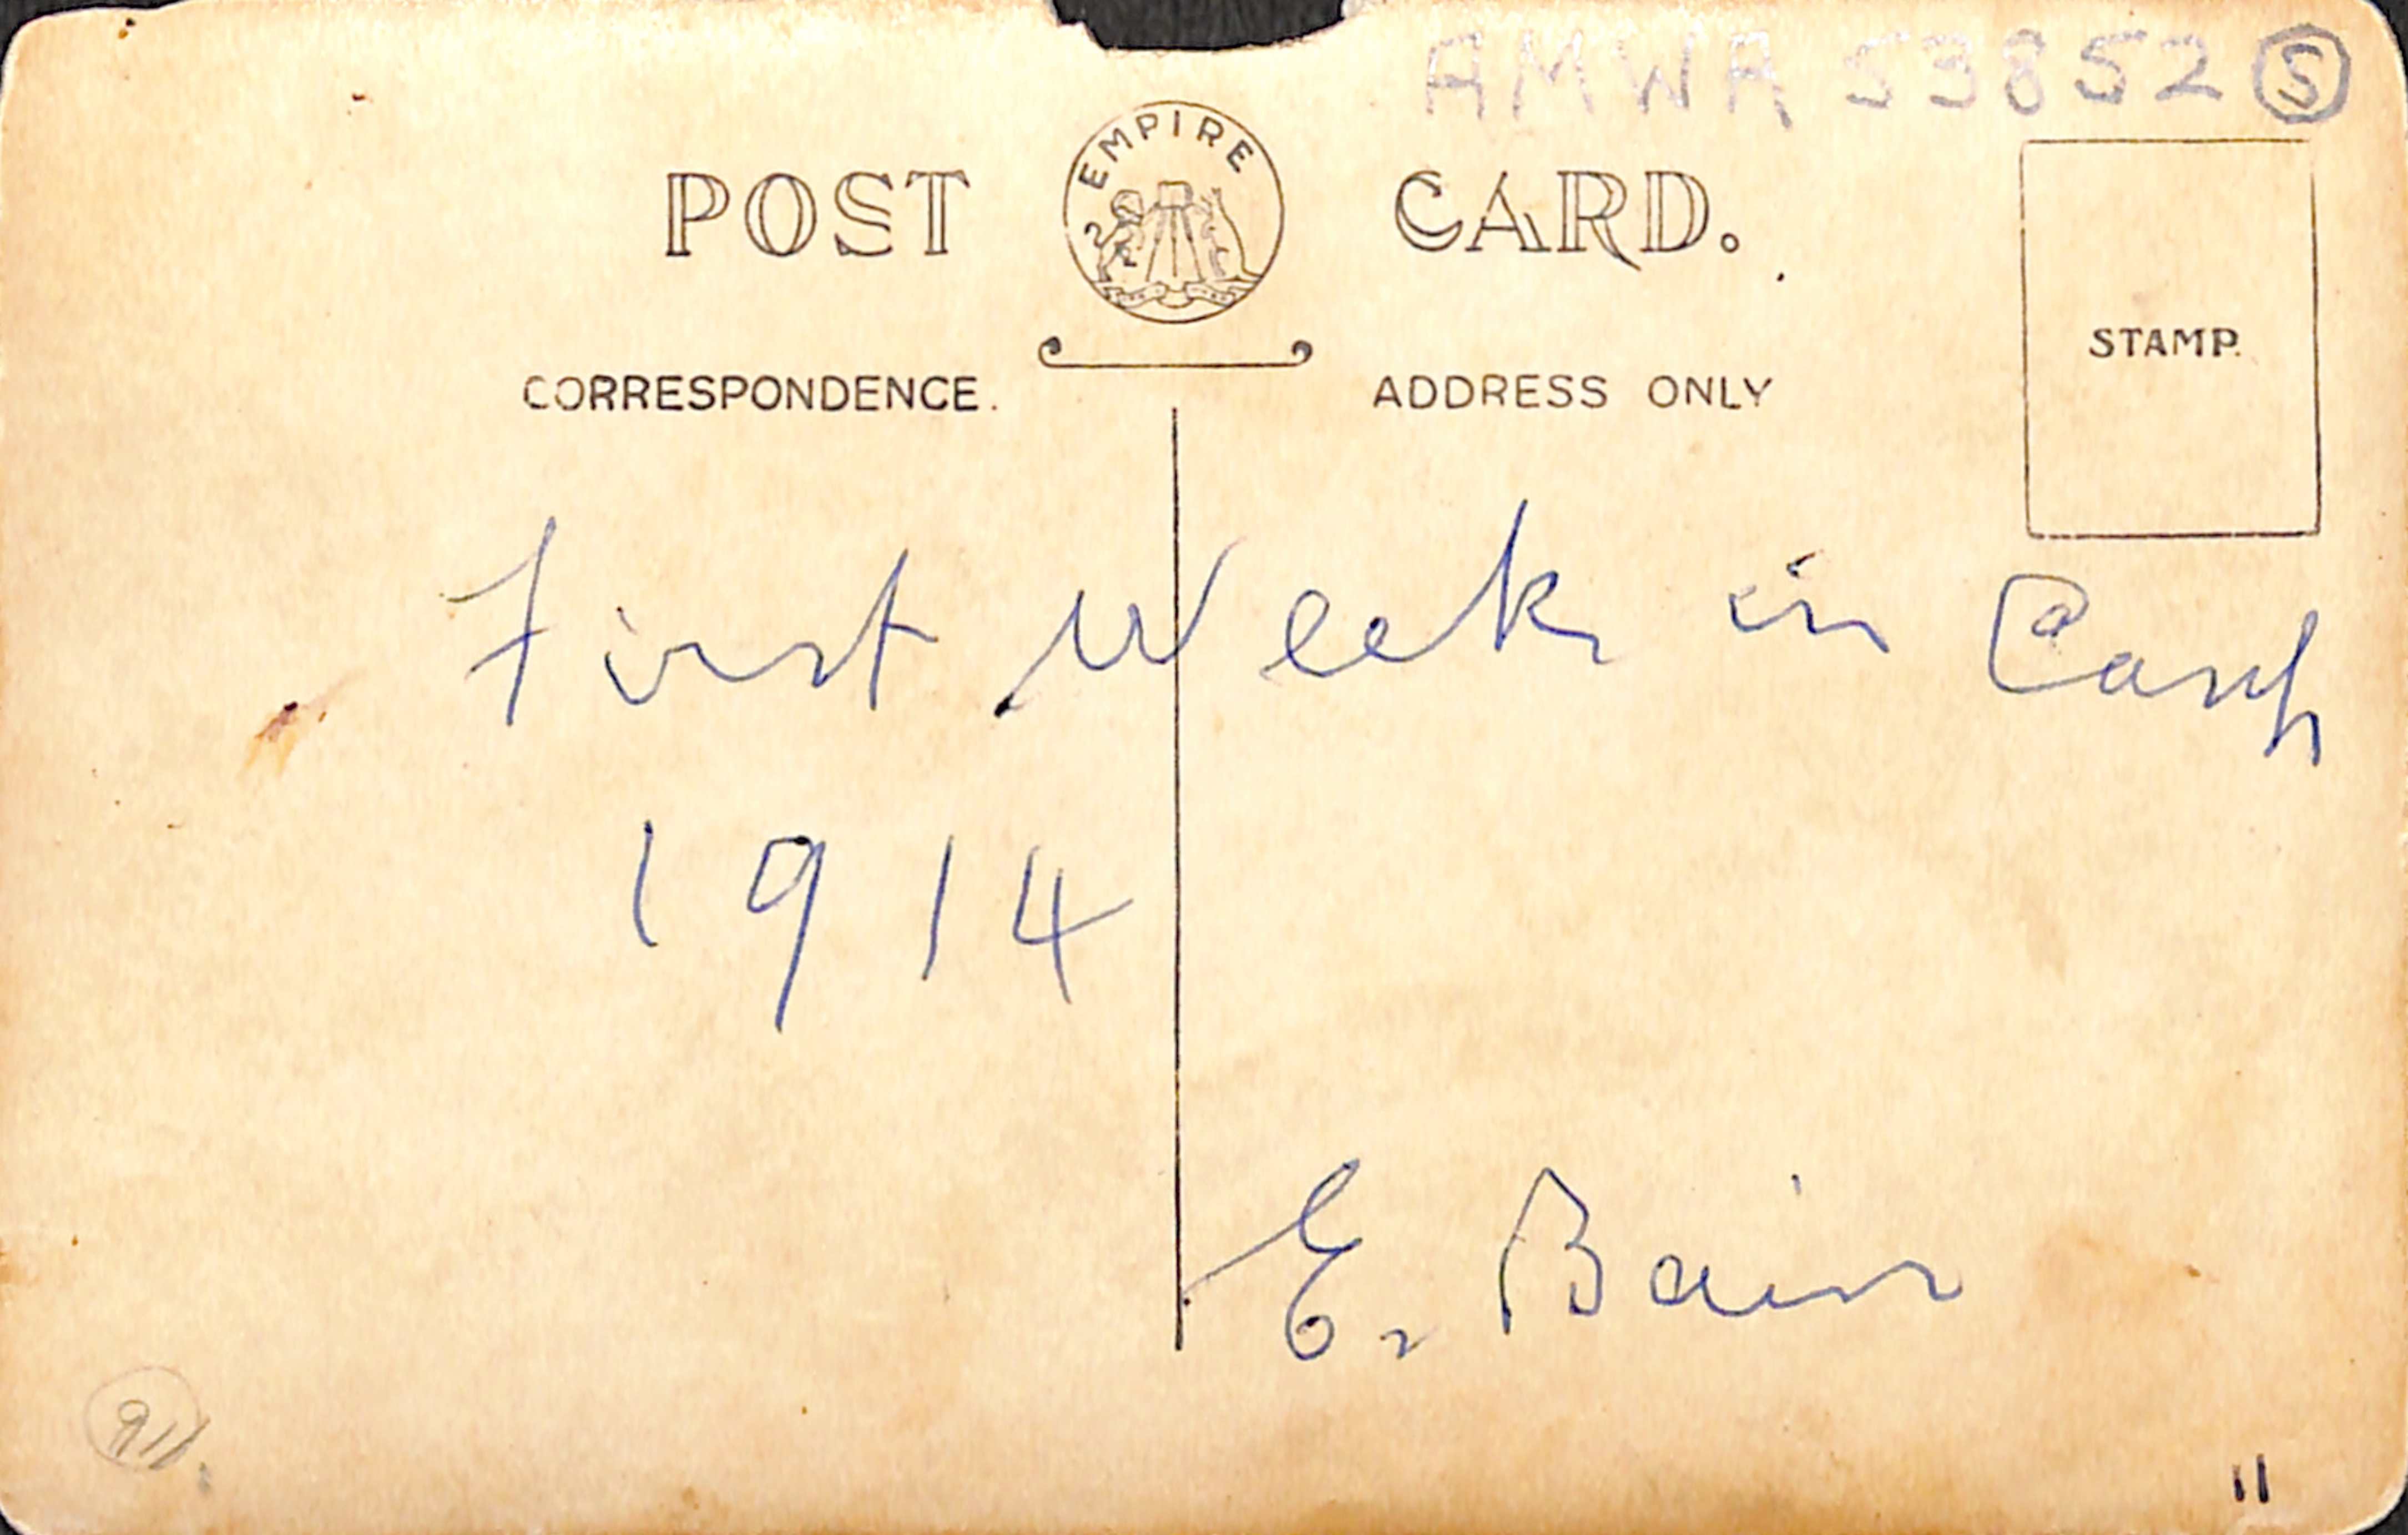 AMWA 53852 (5)
EMPIRE
POST CARD.
STAMP.
CORRESPONDENCE. ADDRESS ONLY
First Week in Camp
1914
E. Bain
11